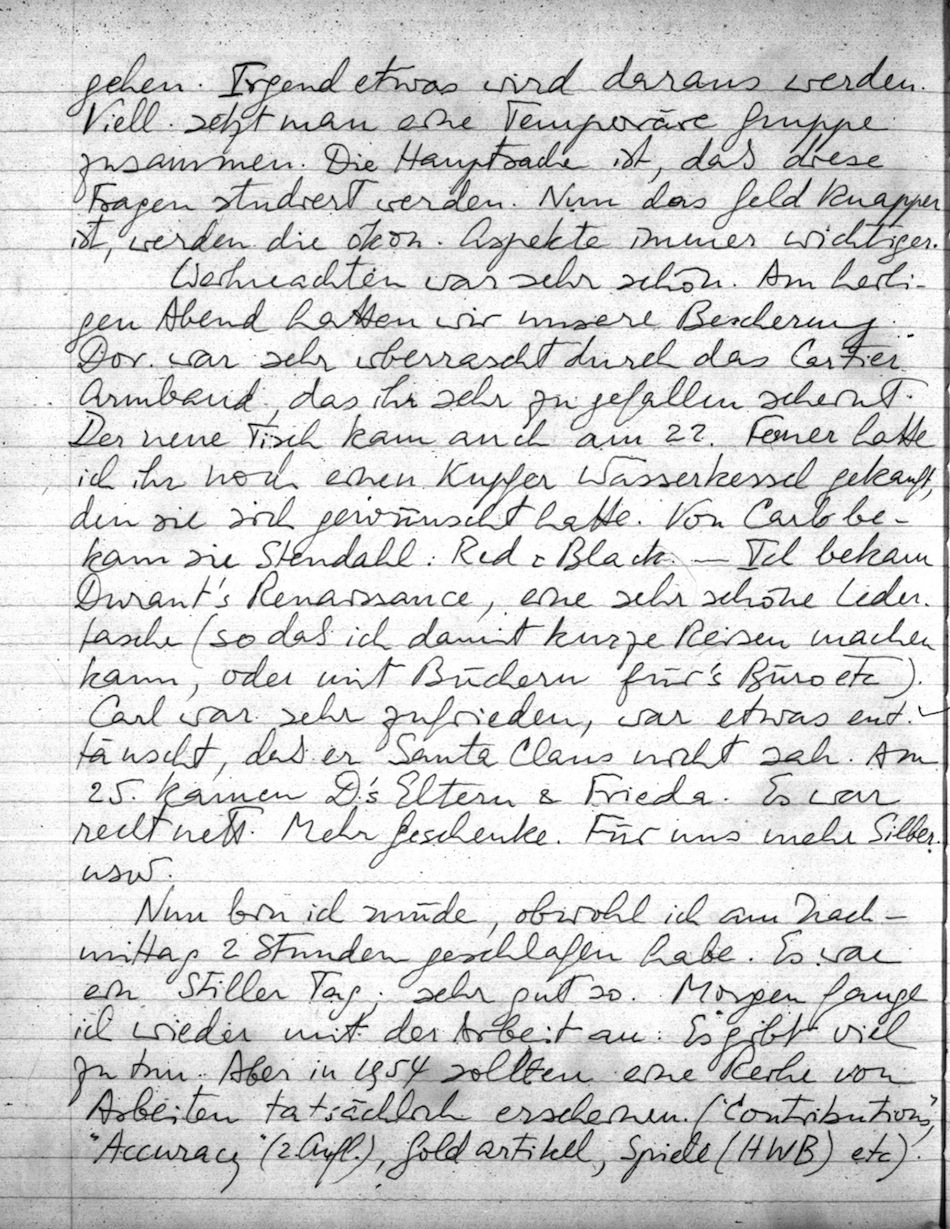 gehen. Irgend etwas wird daraus werden.
Viell. setzt man eine Temporäre Gruppe
zusammen. Die Hauptsache ist, daß diese
Fragen studiert werden. Nun das Geld knapper
ist, werden die ökon. Aspekte immer wichtiger.
Weihnachten war sehr schön. Am heili-
gen Abend hatten wir unsere Bescherung.
Dor. war sehr überrascht durch das Cartier
Armband, das ihr sehr zu gefallen scheint.
Der neue Tisch kam auch am 22. Ferner hatte
ich ihr noch einen Kupfer Wasserkessel gekauft,
den sie sich gewünscht hatte. Von Carlo be-
kam sie Stendahl: Red & Black. — Ich bekam
Durant's Renaissance, eine sehr schöne Leder.
tasche (so daß ich damit kurze Reisen machen
kann, oder mit Büchern für's Büro etc).
Carl war sehr zufrieden, war etwas ent.
täuscht, daß er Santa Claus nicht sah. Am
25. kamen D's Eltern & Frieda. Es war
recht nett. Mehr Geschenke. Für uns mehr Silber.
usw.
Nun bin ich müde, obwohl ich am Nach-
mittag 2 Stunden geschlafen habe. Es war
ein Stiller Tag; sehr gut so. Morgen fange
ich wieder mit der Arbeit an. Es gibt viel
zu tun. Aber in 1954 sollten eine Reihe von
Arbeiten tatsächlich erscheinen. ("Contributions",
"Accuracy" (2. Aufl.), Goldartikel, Spiele (HWB) etc).